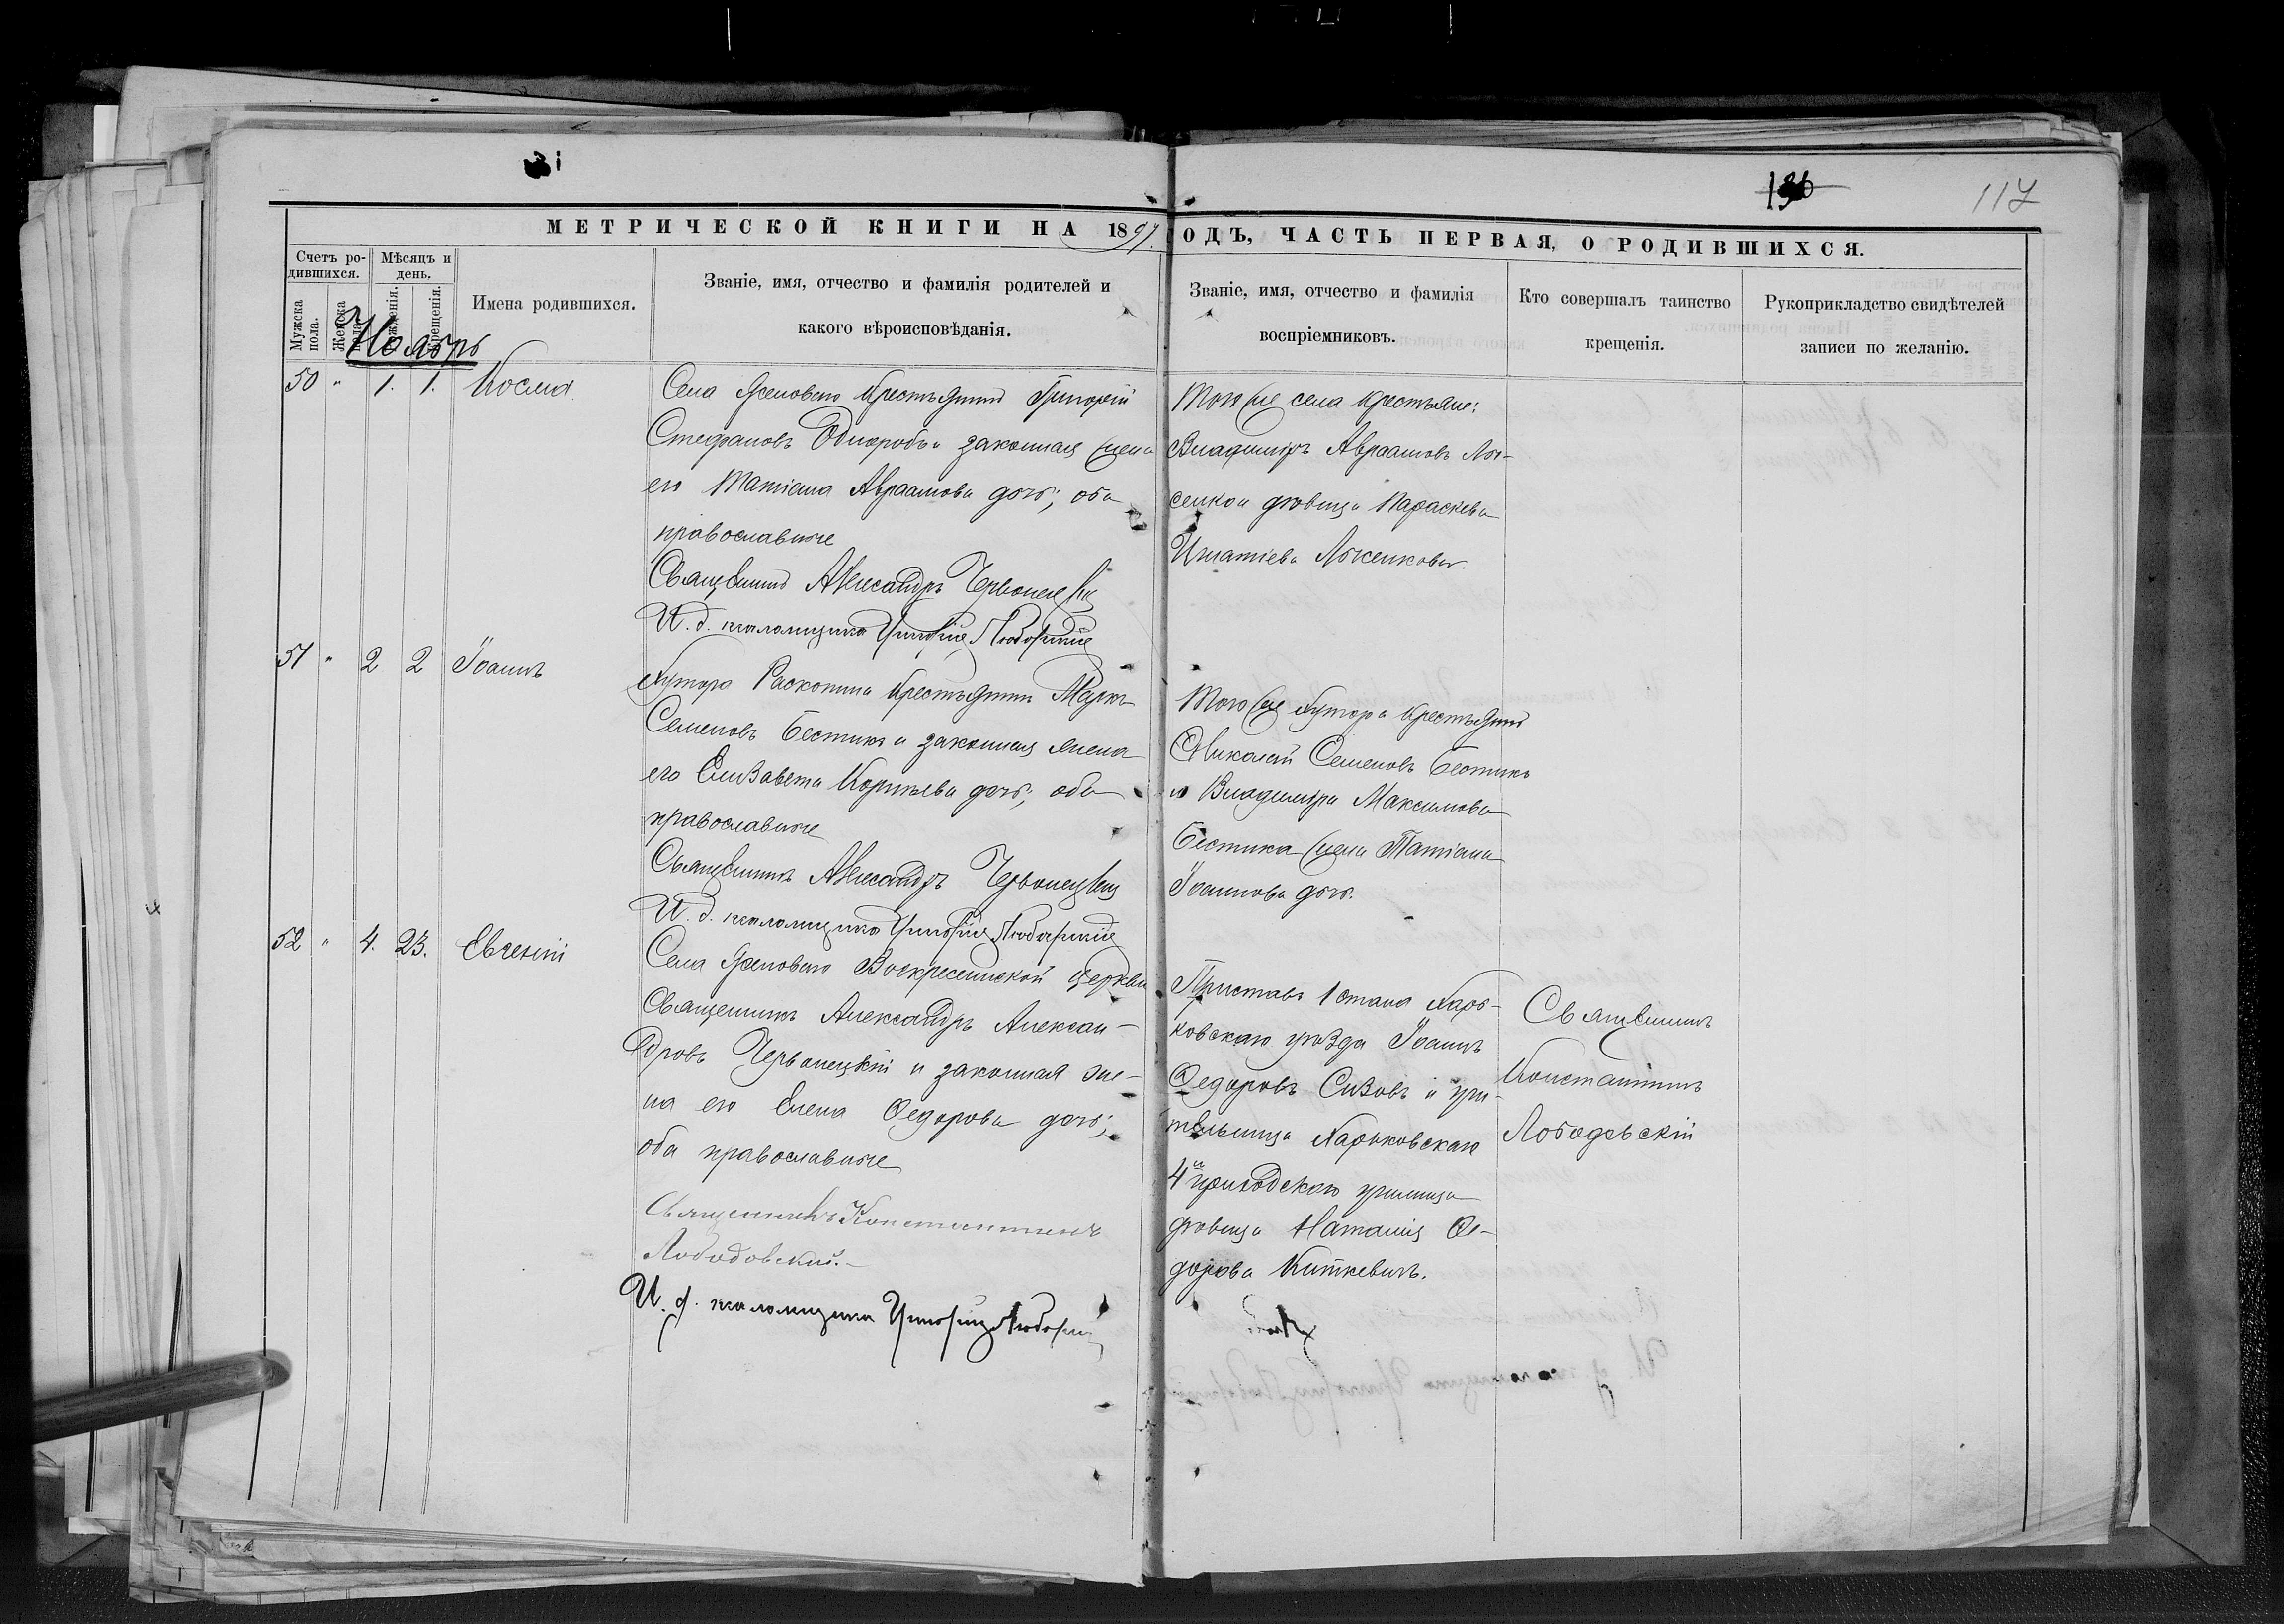 117
МЕТРИЧЕСКОЙ КНИГИ НА 1897 ОДЪ, ЧАСТЬ ПЕРВАЯ, О РОДИВШИХСЯ.
Счетъ ро-
дившихся.
Мужска
пола.
Женска
пола.
Мѣсяцъ и
день.
рожденія.
крещенія.
Имена родившихся.
Званіе, имя, отчество и фамилія родителей и
какого вѣроисповѣданія.
Званіе, имя, отчество и фамилія
воспріемниковъ.
Кто совершалъ таинство
крещенія.
Рукоприкладство свидѣтелей
записи по желанію.
Ноябрь
50 " 1. 1. Косма
Села Яковлевого крестьянинъ Григорій
Стефановъ Однороб и законная жена
его Татіана Авраамова дочь; оба
православные
Священникъ Александръ Червонецкій
И. д. псаломщика
Того же села крестьяне:
Владиміръ Авраамовъ Лы-
сенко и дѣвица Параскева
Игнатіева Лысенкова.
51 " 2 2 Іоаннъ
Хутора Раскопина крестьянинъ Маркъ
Семеновъ Бестикъ и законная жена
его Елизавета Корнильева дочь; оба
православные
Священникъ Александръ Червонецкій
И. д. псаломщика
Того же хутора крестьянинъ
Николай Семеновъ Бестикъ
и Владиміра Максимова
Бестика жена Татіана
Іоаннова дочь.
52 " 4. 23. Евгеній
Села Воскресенской церкви
Священникъ Александръ Алексан-
дровъ Червонецкій и законная же-
на его Елена Ѳедорова дочь;
оба православные
Священникъ Константинъ
Лободовскій.
И. д. псаломщика
Приставъ 1 стана Харь-
ковскаго уѣзда Іоаннъ
Ѳедоровъ Сизовъ и учи-
тельница Харьковскаго
4го приходскаго училища
дѣвица Наталія Ѳе-
дорова Киткевичъ.
Священникъ
Константинъ
Лободовскій